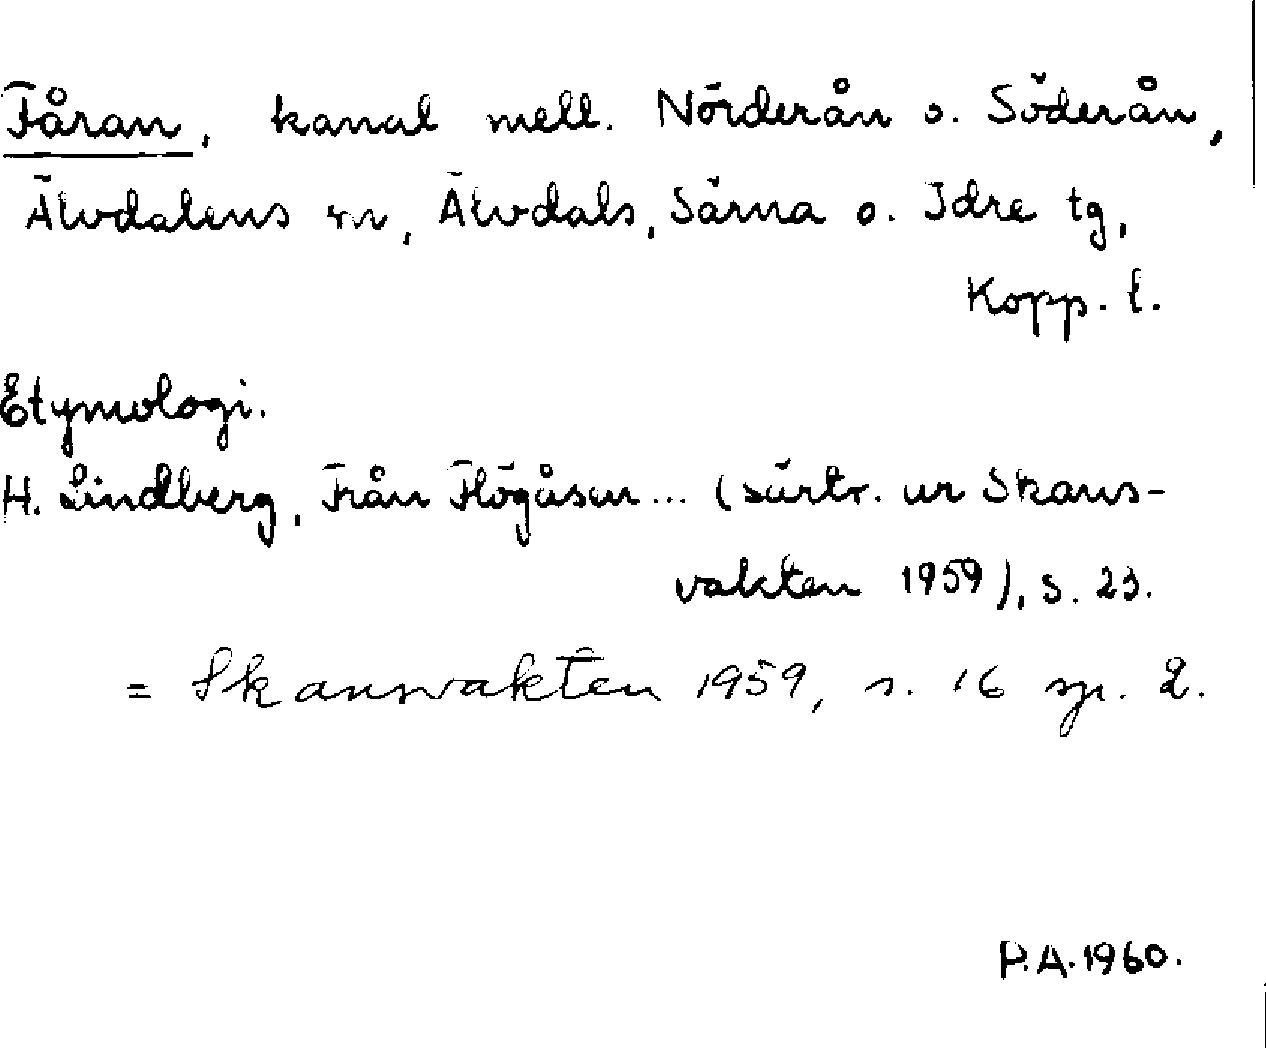 Fåran, kanal mell. Nörderån o. Söderån,
Älvdalens sn, Älvdals, Särna o. Idre tg,
Kopp. l.
Etymologi.
H. Lindberg, Från Flögåsen... (särtr. ur Skans-
vakten 1959), s. 23.
= Skansvakten 1959, s. 16 sp. 2.
P.A. 1960.